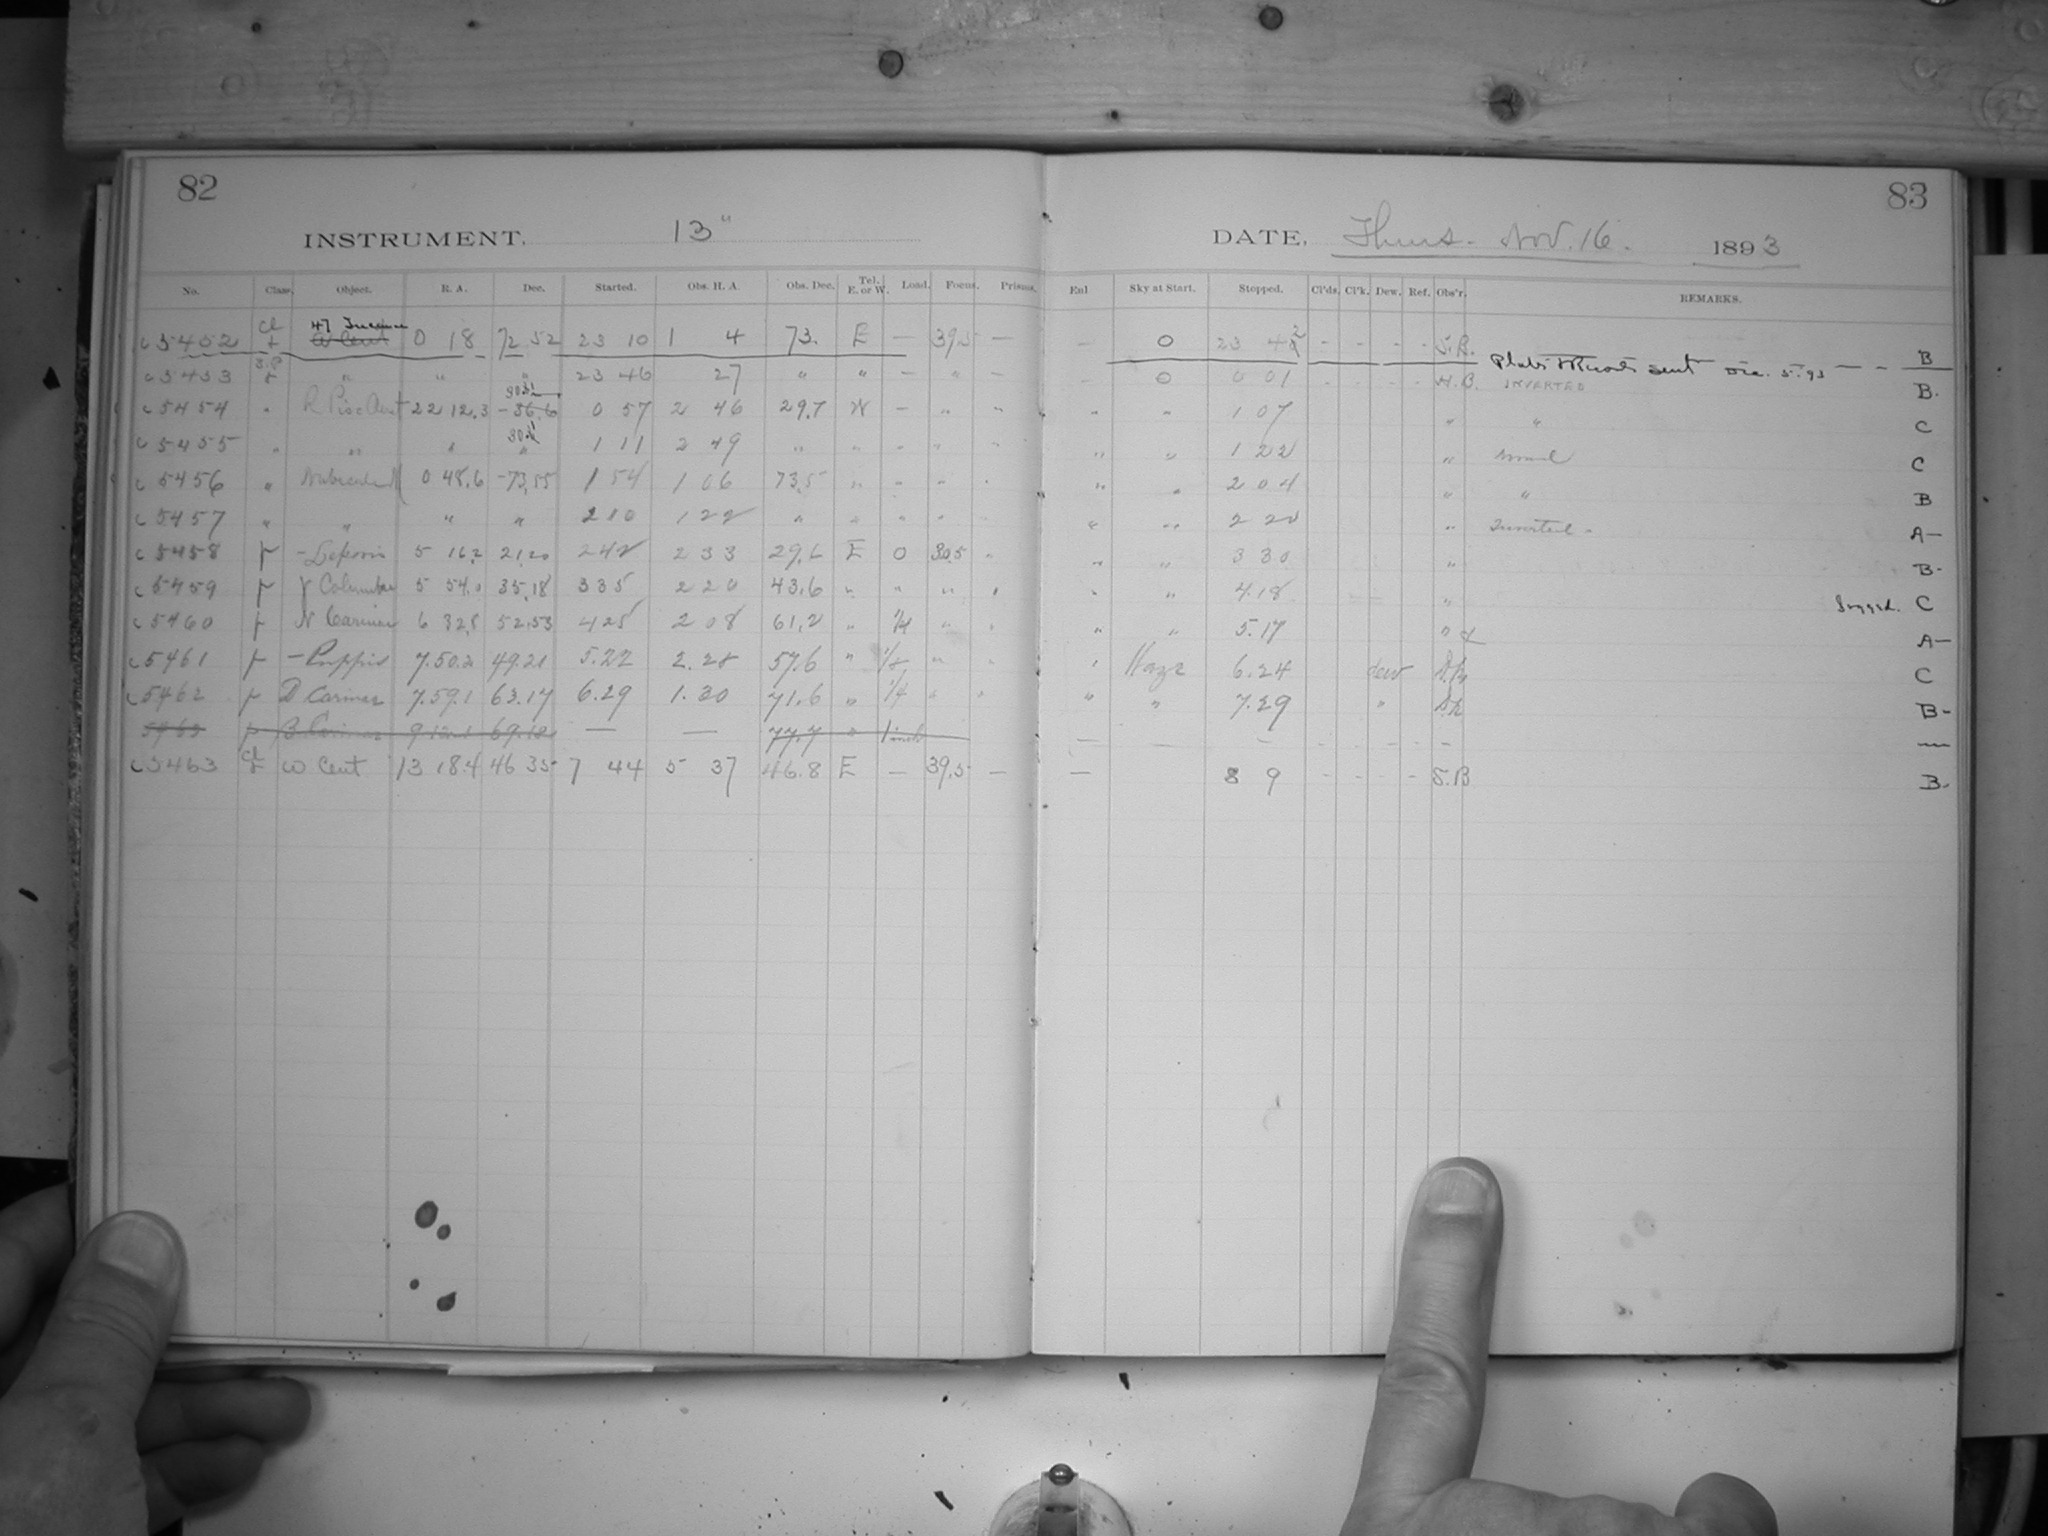 82
83
INSTRUMENT. 13"
DATE, Thurs. Nov. 16. 1893
No. Class. Object. R. A. Dec. Started. Obs. H. A. Obs. Dec. Tel. E. or W. Load. Focus. Prisms. Enl Sky at Start. Stopped. Cl'ds. Cl'k. Dew. Ref. Obs'r. REMARKS.
47 Tucanae
c 5452 Cl ω Cent 0 18 72 52 23 10 1 4 73. E — 39.5 — — 0 23 42 - - - - S.B. B
Plates & Records sent Dec. 5. 93 — - -
c 5453 S.P " " " 23 46 27 " " — " — - 0 0 01 - - - - H.B. INVERTED B.
c 5454 " R Pisc Aust 22 12.3 -36.6 30.1 0 57 2 46 29.7 W - " " " " 1 07 " " C
c 5455 " " " " 30.1 1 11 2 49 " " - " " " " 1 22 " normal C
c 5456 " Nubecula M 0 48.6 -73.55 1 54 1 06 73.5 " - " " " " 2 04 " " B
c 5457 " " " " 2 10 1 22 " " " " " " 2 20 " Inverted - A-
c 5458 r -Leporis 5 16.2 21.20 2 42 2 33 29.6 E 0 39.5 " " " 3 30 " B-
c 5459 r γ Columbae 5 54.0 35.18 3 35 2 20 43.6 " " " " " " 4.18 " Jogged. C
c 5460 r N Carinae 6 32.5 52.53 4 25 2 08 61.2 " 1/4 " " " " 5.17 " & A-
c 5461 r -Puppis 7.50.2 49.21 5.22 2.28 57.6 " 1/8 " " " Haze 6.24 dew C
c 5462 r D Carinae 7.59.1 63.17 6.29 1.30 71.6 " 1/4 " " " " 7.29 " B-
5463 r B Carinae 9.12.1 69.18 — — 77.7 " 1 inch — — - - - - - - —
c 5463 Cl ω Cent 13 18.4 46 35 7 44 5 37 46.8 E — 39.5 — — 8 9 - - - - S.B B.